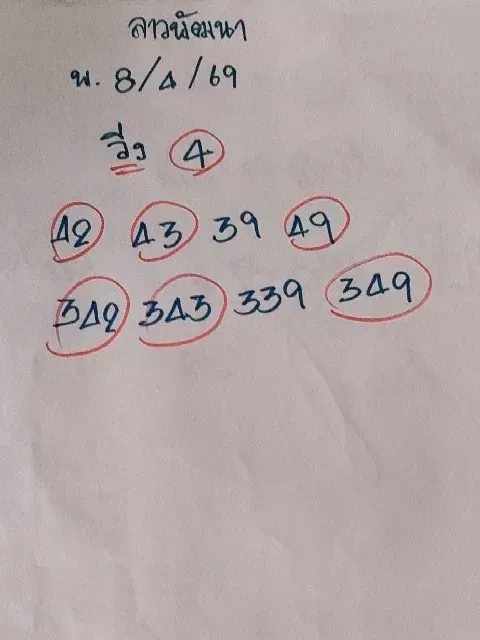 ลาวพัฒนา
พ. 8/4/69
วิ่ง 4
42 43 39 49
342 343 339 349